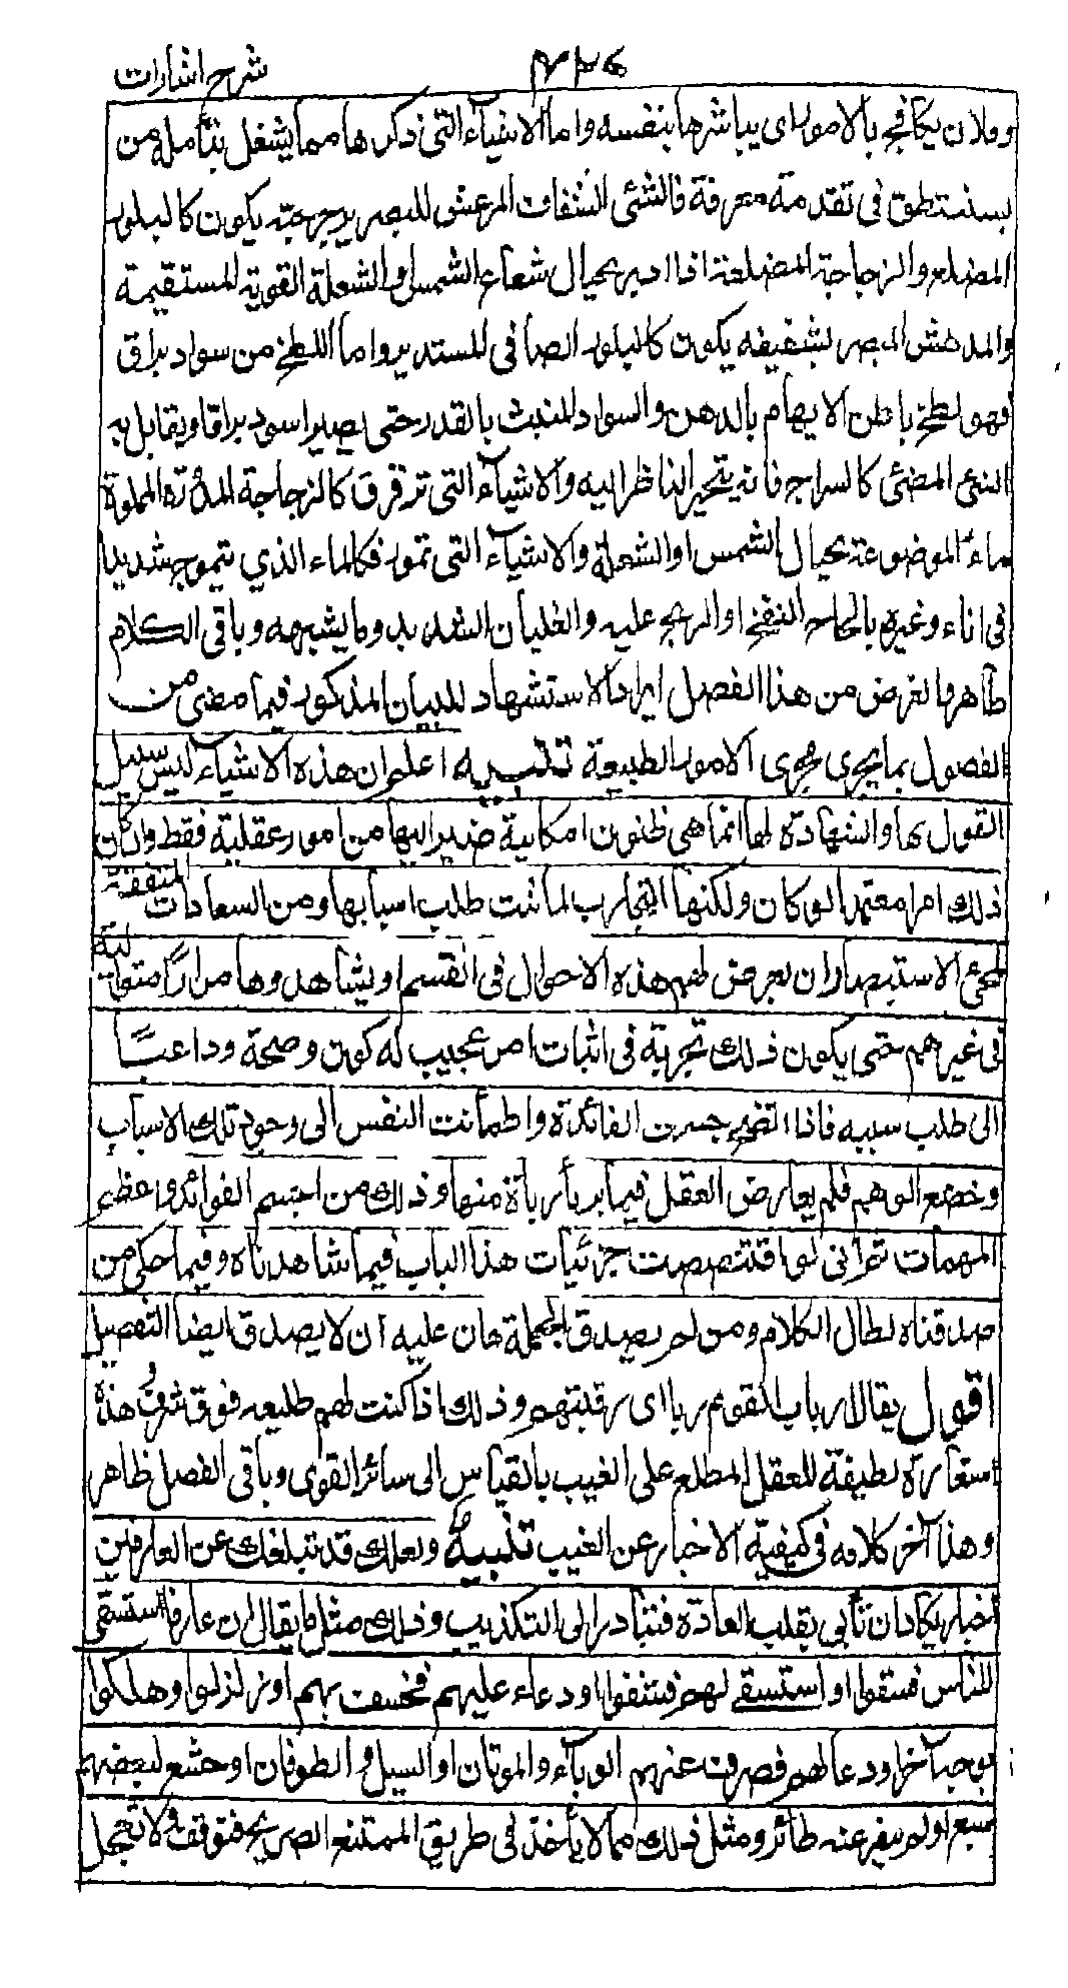 شرح اشارات
وفلان يكافح بالامور اى يباشرها بنفسه واما الاشيآء التى ذكرها مما يشغل بتأمله من
يستنطق فى تقدمة معرفة فالشئ الشفاف المرعش للبصر برجرجته يكون كالبلور
المضلع والزجاجة المضلعة اذا ادير بحيال شعاع الشمس او الشعلة القوية المستقيمة
والمدهش البصر بشفيفه يكون كالبلور الصافى المستدير واما اللطخ من سواد براق
فهو لطخ باطن الابهام بالدهن والسواد المتشبث بالقدر حتى يصير اسود براقا ويقابل به
الشئ المضئ كالسراج فانه يتحير الناظر اليه والاشيآء التى ترقرق كالزجاجة المدورة المملوة
ماء الموضوعة بحيال الشمس او الشعلة والاشيآء التى تمور فكالماء الذي يتموج شديدا
فى اناء وغيره بالحاح النفخ او الريح عليه والغليان الشديد وما يشبهه وباقى الكلام
ظاهر والغرض من هذا الفصل ايراد الاستشهاد للبيان المذكور فيما مضى من
الفصول بما يجرى مجرى الامور الطبيعة تنبيه اعلم ان هذه الاشيآء ليس سبيل
القول بها والشهادة لها انما هى ظنون امكانية صير اليها من امور عقلية فقط وان كان
ذلك امرا معتمدا لو كان ولكنها التجارب لما ثبت طلب اسبابها ومن السعادات المتفقة
لمحبى الاستبصار ان يعرض لهم هذه الاحوال فى انفسهم او يشاهدوها مرارًا متوالية
فى غيرهم حتى يكون ذلك تجربة فى اثبات امر عجيب له كون وصحة وداعيًا
الى طلب سببه فاذا اتضح جسرت الفائدة واطمأنت النفس الى وجود تلك الاسباب
وخضع الوهم فلم يعارض العقل فيما يربأ ربأة منها وذلك من اجسم الفوائد واعظم
المهمات ثم انى لو اقتصصت جزئيات هذا الباب فيما شاهدناه وفيما حكى من
صدقناه لطال الكلام ومن لم يصدق الجملة هان عليه ان لا يصدق ايضا التفصيل
اقول يقال ربات القوم ربا اى رقبتهم وذلك اذا كنت لهم طليعه فوق شرف هذه
استعارة لطيفة للعقل المطلع على الغيب بالقياس الى سائر القوى وباقى الفصل ظاهر
وهذا آخر كلامه فى كيفية الاخبار عن الغيب تنبيه ولعلك قد تبلغك عن العارفين
اخبار يكاد ان تأبى بقلب العادة فتبادر الى التكذيب وذلك مثل ما يقال ان عارفا استسقى
للناس فسقوا او استسقى لهم فشفوا او دعاء عليهم فخسف بهم او زلزلوا وهلكوا
بوجه آخر او دعا لهم فصرف عنهم الوبآء والموتان او السيل والطوفان او خشع لبعضهم
سبع او لم ينفر عنه طائر ومثل ذلك مما لا يأخذ فى طريق الممتنع الصريح فتوقف ولا تعجل